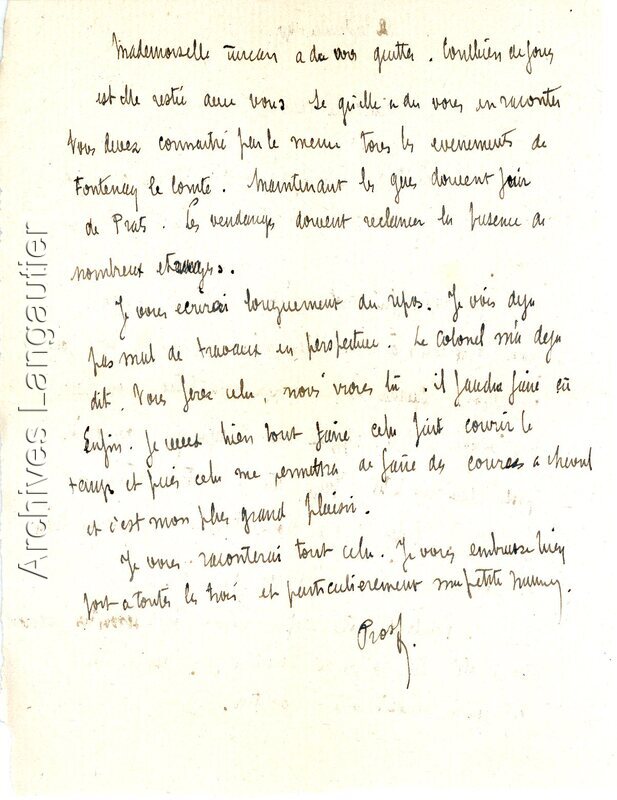 Mademoiselle a du vous quitter. Combien de jours
est elle restée avec vous. Se qu'elle a du vous en raconter
Vous devez connaitre par le menu tous les evenements de
Fontenay le Comte. Maintenant les gens doivent
de Prats. Les vendanges doivent reclamer la presence de
nombreux etrangers.
Je vous ecrirai longuement du repos. Je vois deja
pas mal de travaux en perspective. Le Colonel m'a deja
dit, Vous ferez cela, nous irons là. il faudra faire
Enfin. Je veux bien tout faire cela fait courir le
temps et puis cela me permettra de faire des courses a cheval
et c'est mon plus grand plaisir.
Je vous raconterai tout cela. Je vous embrasse bien
fort a toutes les trois et particulierement ma petite
Archives Langautier